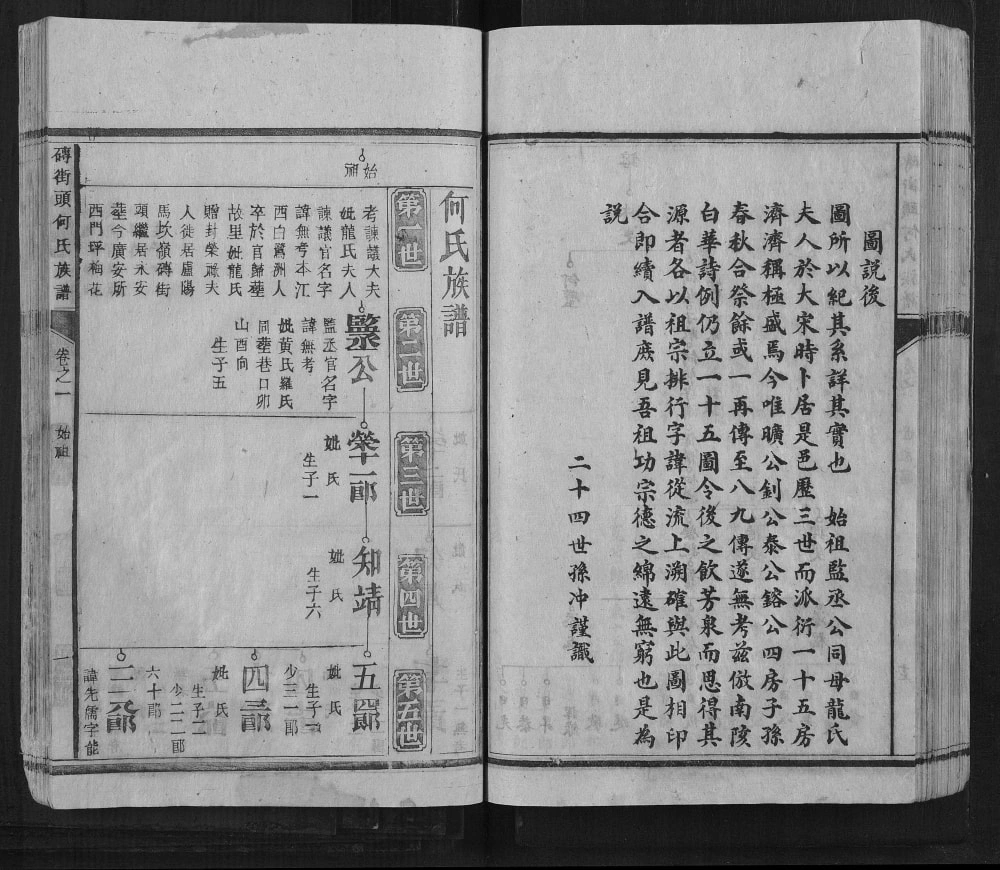 圖説後
圖所以紀其系詳其實也　始祖監丞公同母龍氏
夫人於大宋時卜居是邑歷三世而派衍一十五房
濟濟稱極盛焉今唯曠公釗公泰公鎔公四房子孫
春秋合祭餘或一再傳至八九傳遂無考茲倣南陔
白華詩例仍立一十五圖令後之飲芳泉而思得其
源者各以祖宗排行字諱從流上溯確與此圖相印
合即續入譜庶見吾祖功宗德之綿遠無窮也是為
説
二十四世孫冲謹識
何氏族譜
第一世
第二世
第三世
第四世
第五世
始祖
考諫議大夫
妣龍氏夫人
諫議官名字
諱無考本江
西白鷺洲人
卒於官歸葬
故里妣龍氏
贈封榮祿夫
人徙居盧陽
馬坎嶺磚街
頭繼居永安
葬今廣安所
西門坪梅花
監丞公
監丞官名字
諱無考
妣黃氏羅氏
同葬巷口卯
山酉向
生子五
榮十一郎
妣　氏
生子一
知靖
妣　氏
生子六
五二郎
妣　氏
生子三
少三一郎
四三郎
妣　氏
生子二
少二二郎
六十郎
三八郎
諱先儒字能
磚街頭何氏族譜
卷之一　始祖
一